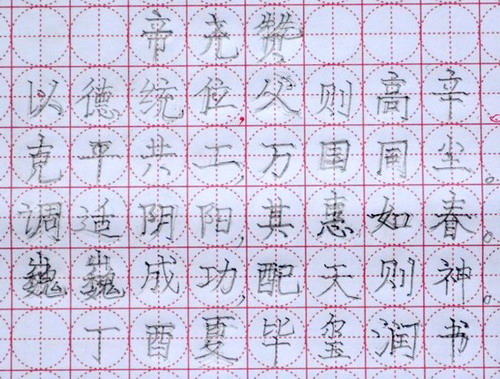 帝尧赞
以德统位,父则高辛。
克平共工,万国同尘。
调适阴阳,其惠如春。
巍巍成功,配天则神。
丁酉夏毕玺润书